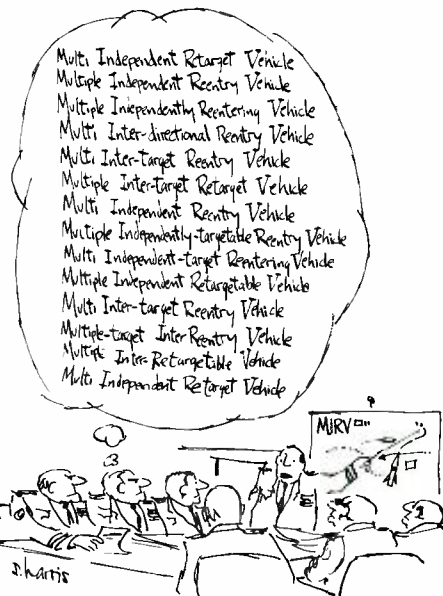 Multi Independent Retarget Vehicle
Multiple Independent Reentry Vehicle
Multiple Independently Reentering Vehicle
Multi Inter-directional Reentry Vehicle
Multi Inter-target Reentry Vehicle
Multiple Inter-target Retarget Vehicle
Multi Independent Reentry Vehicle
Multiple Independently-targetable Reentry Vehicle
Multi Independent-target Reentering Vehicle
Multiple Independent Retargetable Vehicle
Multi Inter-target Reentry Vehicle
Multiple-target Inter Reentry Vehicle
Multiple Inter-Retargetible Vehicle
Multi Independent Retarget Vehicle
MIRV
s. harris